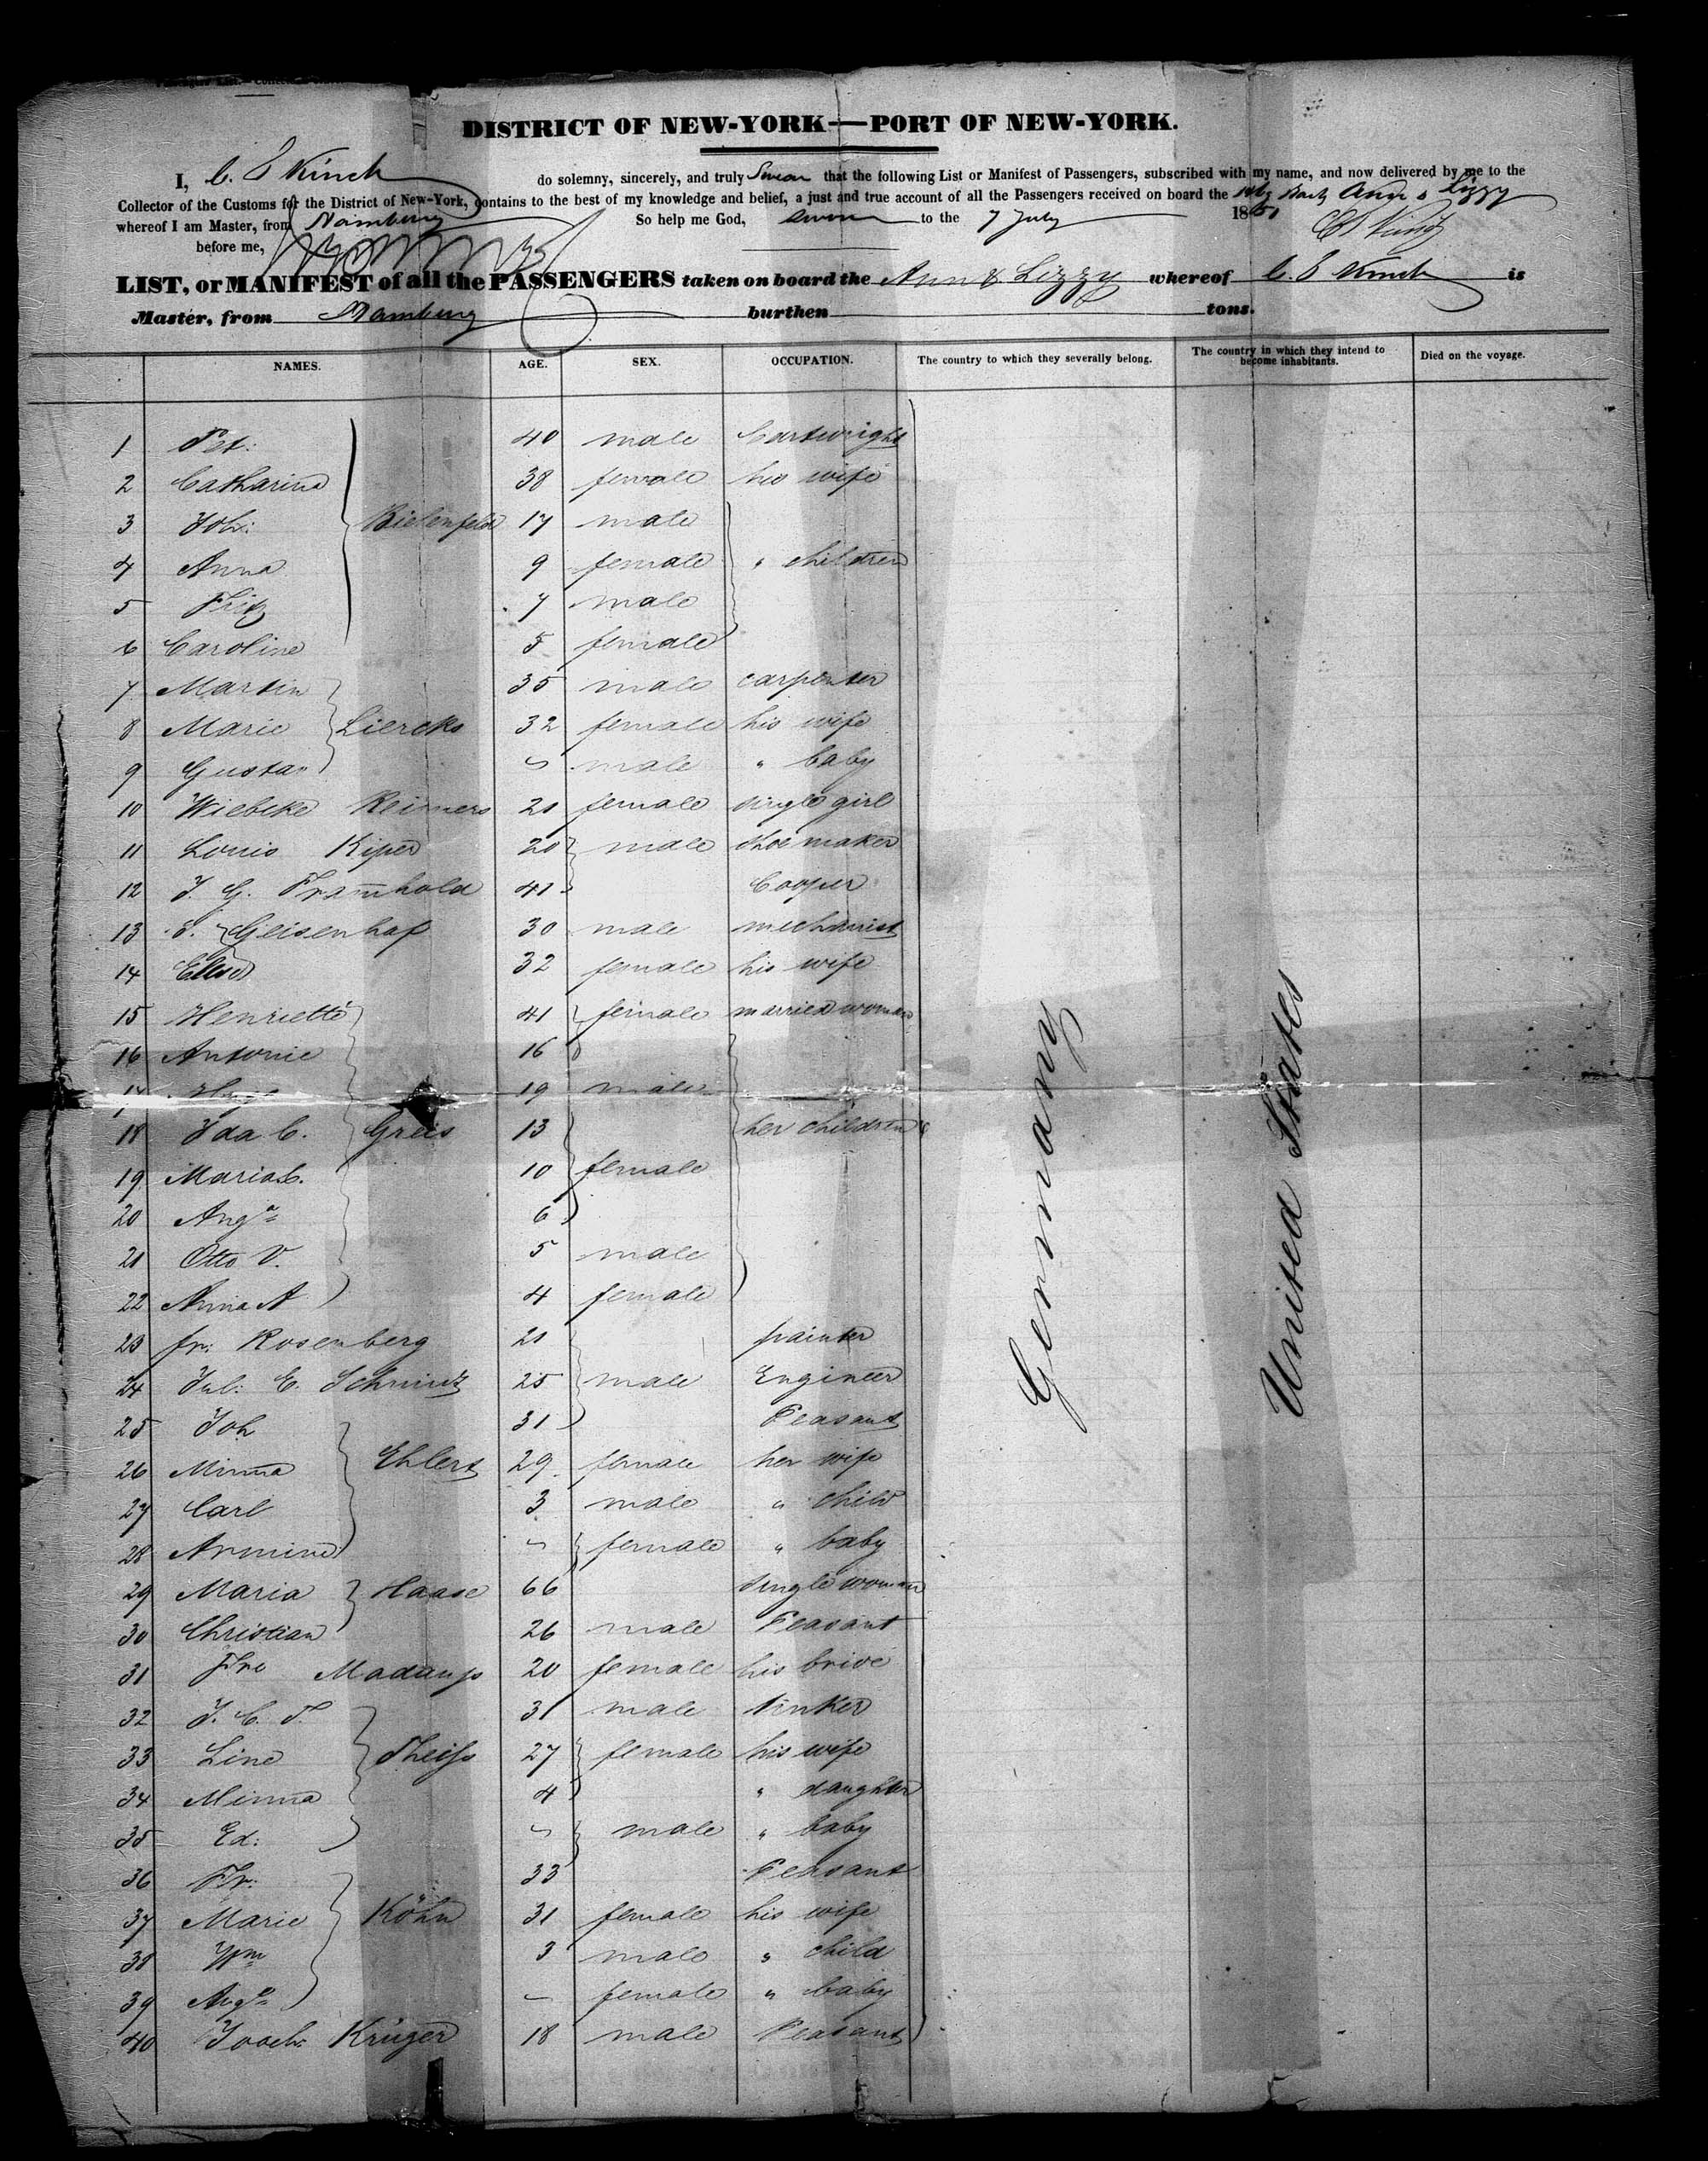 DISTRICT OF NEW-YORK—PORT OF NEW-YORK.
I, C. E Kinch do solemny, sincerely, and truly Swear that the following List or Manifest of Passengers, subscribed with my name, and now delivered by me to the
Collector of the Customs for the District of New-York, contains to the best of my knowledge and belief, a just and true account of all the Passengers received on board the Ann & Lizzy
whereof I am Master, from Hamburg So help me God, sworn to the 7 July 1851
before me,
LIST, or MANIFEST of all the PASSENGERS taken on board the Ann & Lizzy whereof C E Kinch is
Master, from Hamburg burthen tons.
NAMES. AGE. SEX. OCCUPATION. The country to which they severally belong. The country in which they intend to become inhabitants. Died on the voyage.
1 Pet: 40 male Cartwright
2 Catharina 38 female his wife
3 Joh: Bielenfeld 17 male
4 Anna 9 female " children
5 Fritz 7 male
6 Caroline 5 female
7 Martin 35 male carpenter
8 Marie Liercks 32 female his wife
9 Gustav male " baby
10 Wiebcke Reimers 21 female single girl
11 Louis Kiper 20 male shoemaker
12 J. G. Framhold 41 Cooper
13 Geisenhaf 30 male mechanist
14 Elise 32 female his wife
15 Henriette 41 female married woman
16 Antonie 16
17 19 male
18 Ida C. Greis 13 her children
19 Maria C. 10 female
20 Aug.a 6
21 Otto V. 5 male
22 Anna A 4 female
23 fr: Rosenberg 21 painter
24 Jul: E. Schmidt 25 male Engineer
25 Joh 31 Peasant
26 Minna Ehlert 29 female her wife
27 Carl 3 male " child
28 Armine female " baby
29 Maria Haase 66 single woman
30 Christian 26 male Peasant
31 Fre Madaups 20 female his bride
32 J. C. T. 31 male tinker
33 Line Theiss 27 female his wife
34 Minna 4 " daughter
35 Ed: male " baby
36 Fr: 33 Peasant
37 Marie Köhn 31 female his wife
38 Wm 3 male " child
39 Aug.e female " baby
40 Joach: Krüger 18 male Peasant
Germany
United States